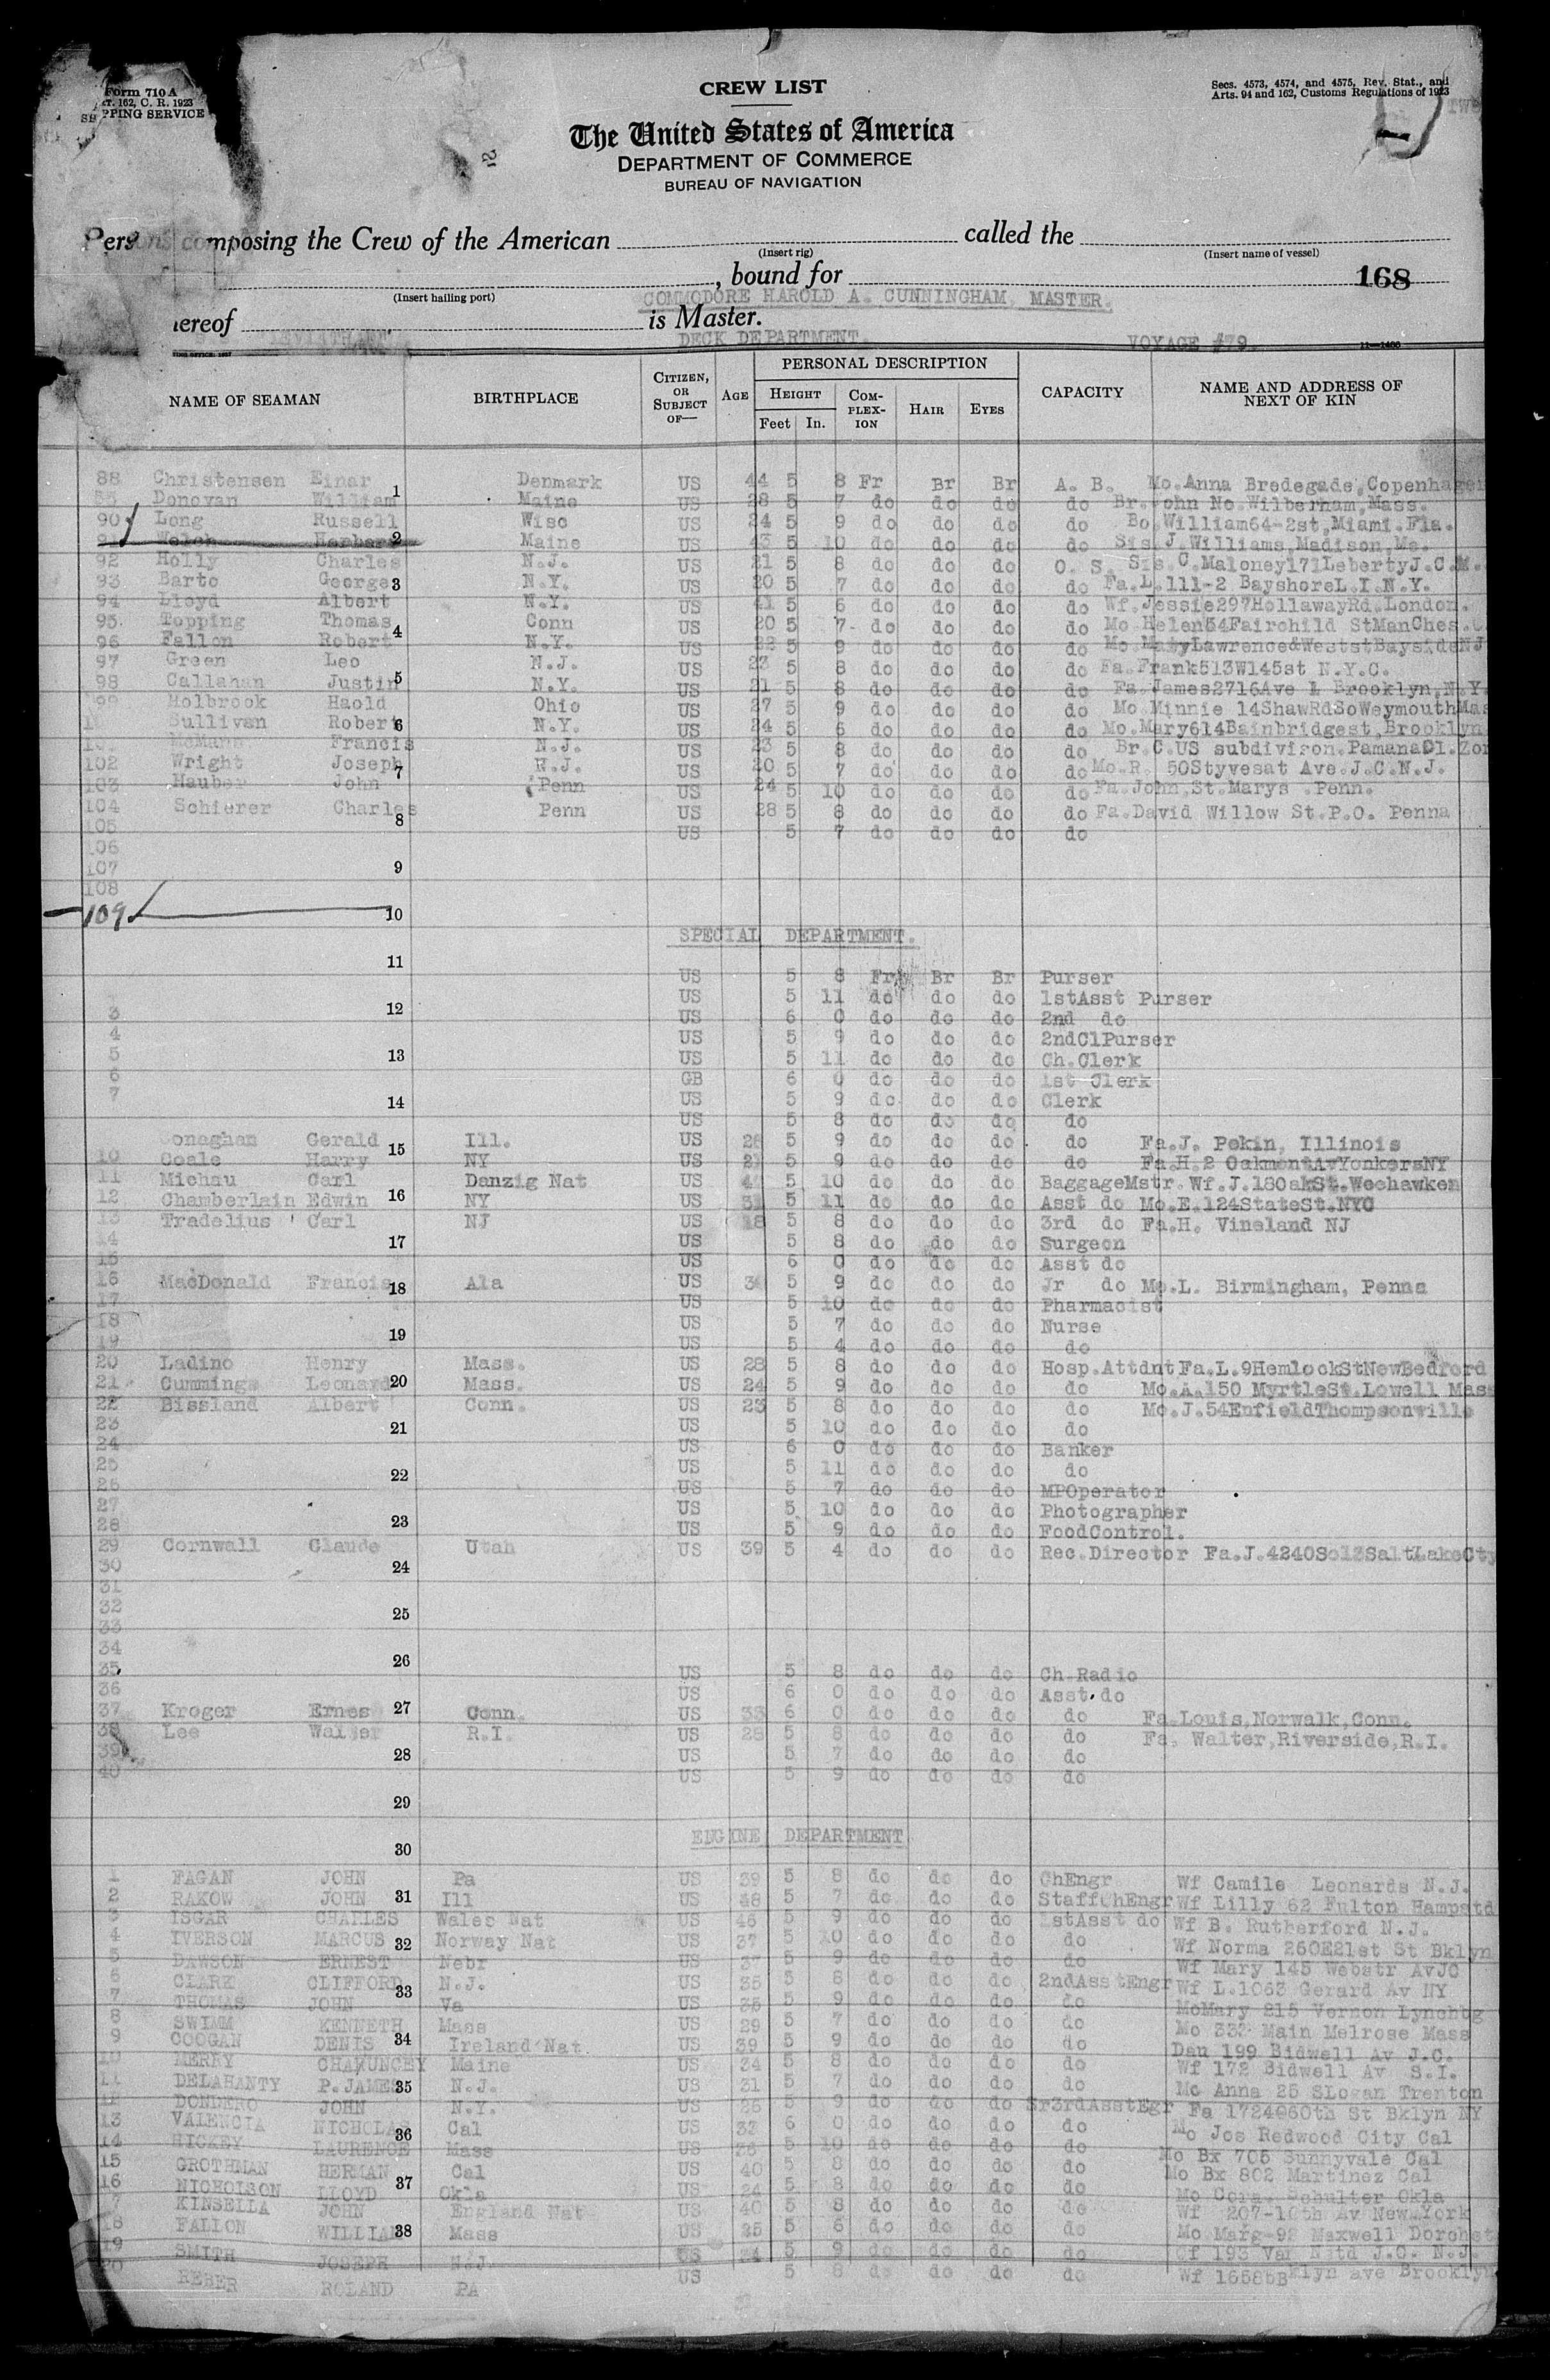 Form 710 A
ART. 162, C. R. 1923
SHIPPING SERVICE
CREW LIST
Secs. 4573, 4574, and 4575, Rev. Stat., and
Arts. 94 and 162, Customs Regulations of 1923
The United States of America
DEPARTMENT OF COMMERCE
BUREAU OF NAVIGATION
Persons composing the Crew of the American called the
(Insert rig) (Insert name of vessel)
, bound for 168
(Insert hailing port) COMMODORE HAROLD A. CUNNINGHAM MASTER.
hereof is Master.
LEVIATHAN DECK DEPARTMENT. VOYAGE #79. 11—1466
NAME OF SEAMAN BIRTHPLACE CITIZEN, OR SUBJECT OF— AGE PERSONAL DESCRIPTION CAPACITY NAME AND ADDRESS OF NEXT OF KIN
HEIGHT COMPLEXION HAIR EYES
Feet In.
88 Christensen Einar 1 Denmark US 44 5 8 Fr Br Br A. B. Mo.Anna Bredegade,Copenhagen
Donovan William Maine US 28 5 7 do do do do Br.John No.Wilberham,Mass.
90 Long Russell Wisc US 24 5 9 do do do do Bo.William64-2st,Miami.Fla.
91 Welch Herbert 2 Maine US 43 5 10 do do do do Sis.J.Williams,Madison,Me.
92 Holly Charles N.J. US 21 5 8 do do do O. S. Sis.C.Maloney171LebertyJ.C.M.
93 Barto George 3 N.Y. US 20 5 7 do do do do Fa.L.111-2 BayshoreL.I.N.Y.
94 Lloyd Albert N.Y. US 41 5 6 do do do do Wf.Jessie297HollawayRd.London.
95 Topping Thomas 4 Conn US 20 5 7 do do do do Mo Helen54Fairchild StManChes.
96 Fallon Robert N.Y. US 22 5 9 do do do do Mo.MaryLawrence&WeststBaysideNJ
97 Green Leo N.J. US 23 5 8 do do do do Fa.Frank513W145st N.Y.C.
98 Callahan Justin 5 N.Y. US 21 5 8 do do do do Fa.James2716Ave L Brooklyn,N.Y.
99 Holbrook Haold Ohio US 27 5 9 do do do do Mo Minnie 14ShawRdSoWeymouthMas
Sullivan Robert 6 N.Y. US 24 5 6 do do do do Mo.Mary614Bainbridgest,Brooklyn
Francis N.J. US 23 5 8 do do do do Br.C.US subdivison.PamanaCl.Zon
102 Wright Joseph 7 N.J. US 20 5 7 do do do do Mo.R. 50Styvesat Ave.J.C.N.J.
103 Hauber John Penn US 24 5 10 do do do do Fa.John,St.Marys .Penn.
104 Schierer Charles 8 Penn US 28 5 8 do do do do Fa.David Willow St.P.O. Penna
105 US 5 7 do do do do
106
107 9
108
109 10
SPECIAL DEPARTMENT.
11
US 5 8 Fr Br Br Purser
US 5 11 do do do 1stAsst Purser
3 12 US 6 0 do do do 2nd do
4 US 5 9 do do do 2ndClPurser
5 13 US 5 11 do do do Ch.Clerk
6 GB 6 0 do do do 1st Clerk
7 14 US 5 9 do do do Clerk
US 5 8 do do do do
onaghan Gerald 15 Ill. US 5 9 do do do do Fa.J. Pekin, Illinois
10 Coale Harry NY US 5 9 do do do do Fa.H.2 OakmontAvYonkersNY
11 Michau Carl Danzig Nat US 5 10 do do do BaggageMstr.Wf.J.18OakSt.Weehawken
12 Chamberlain Edwin 16 NY US 31 5 11 do do do Asst do Mo.E.124StateSt.NYC
13 Tradelius Carl NJ US 18 5 8 do do do 3rd do Fa.H. Vineland NJ
14 17 US 5 8 do do do Surgeon
15 US 6 0 do do do Asst do
16 MacDonald Francis 18 Ala US 5 9 do do do Jr do Mo.L. Birmingham, Penna
17 US 5 10 do do do Pharmacist
18 19 US 5 7 do do do Nurse
19 US 5 4 do do do do
20 Ladino Henry Mass. US 28 5 8 do do do Hosp.Attdnt Fa.L.9HemlockStNewBedford
21 Cummings Leonard 20 Mass. US 24 5 9 do do do do Mo.A.150 MyrtleSt.Lowell Mass
22 Bissland Albert Conn. US 23 5 8 do do do do Mo.J.54EnfieldThompsonville
23 21 US 5 10 do do do do
24 US 6 0 do do do Banker
25 22 US 5 11 do do do do
26 US 5 7 do do do MPOperator
27 US 5 10 do do do Photographer
28 23 US 5 9 do do do FoodControl.
29 Cornwall Claude Utah US 39 5 4 do do do Rec.Director Fa.J.4240So13SaltLakeCty
30 24
31
32 25
33
34 26
35 US 5 8 do do do Ch Radio
36 US 6 0 do do do Asst.do
37 Kroger Ernes 27 Conn. US 33 6 0 do do do do Fa Louis,Norwalk,Conn.
38 Lee Walter R.I. US 28 5 8 do do do do Fa. Walter,Riverside,R.I.
39 28 US 5 7 do do do do
40 US 5 9 do do do do
29
ENGINE DEPARTMENT
30
1 FAGAN JOHN Pa US 39 5 8 do do do ChEngr Wf Camile Leonards N.J.
2 RAKOW JOHN 31 Ill US 48 5 7 do do do StaffChEngr Wf Lilly 62 Fulton Hampstd
3 ISGAR CHARLES Wales Nat US 46 5 9 do do do 1stAsst do Wf B. Rutherford N.J.
4 IVERSON MARCUS 32 Norway Nat US 37 5 10 do do do do Wf Norma 260E21st St Bklyn
5 DAWSON ERNEST Nebr US 37 5 9 do do do do Wf Mary 145 Webstr AvJC
6 CLARK CLIFFORD 33 N.J. US 35 5 8 do do do 2ndAsstEngr Wf L.1063 Gerard Av NY
7 THOMAS JOHN Va US 35 5 9 do do do do MoMary 215 Vernon Lynchbg
8 SWIMM KENNETH Mass US 29 5 7 do do do do Mo 332 Main Melrose Mass
9 COOGAN DENIS 34 Ireland Nat US 39 5 9 do do do do Dau 199 Bidwell Av J.C.
10 MERRY CHAUNCEY Maine US 34 5 8 do do do do Wf 172 Bidwell Av S.I.
11 DELAHANTY P.JAMES 35 N.J. US 31 5 7 do do do do Mo Anna 25 SLogan Trenton
12 DONDERO JOHN N.Y. US 26 5 9 do do do Sr3rdAsstEgr Fa 1724060th St Bklyn NY
13 VALENCIA NICHOLAS 36 Cal US 32 6 0 do do do do Mo Jos Redwood City Cal
14 HICKEY LAURENCE Mass US 26 5 10 do do do do Mo Bx 705 Sunnyvale Cal
15 GROTHMAN HERMAN 37 Cal US 40 5 8 do do do do Mo Bx 802 Martinez Cal
16 NICHOLSON LLOYD Okla US 24 5 8 do do do do Mo Cora. Schulter Okla
17 KINSELLA JOHN England Nat US 40 5 8 do do do do Wf 207-10th Av New York
18 FALLON WILLIAM 38 Mass US 25 5 6 do do do do Mo Marg-92 Maxwell Dorchst
19 SMITH JOSEPH N.J. US 5 9 do do do do 193 Van J.C. N.J.
20 REBER ROLAND PA US 5 8 do do do do Wf Bklyn ave Brooklyn